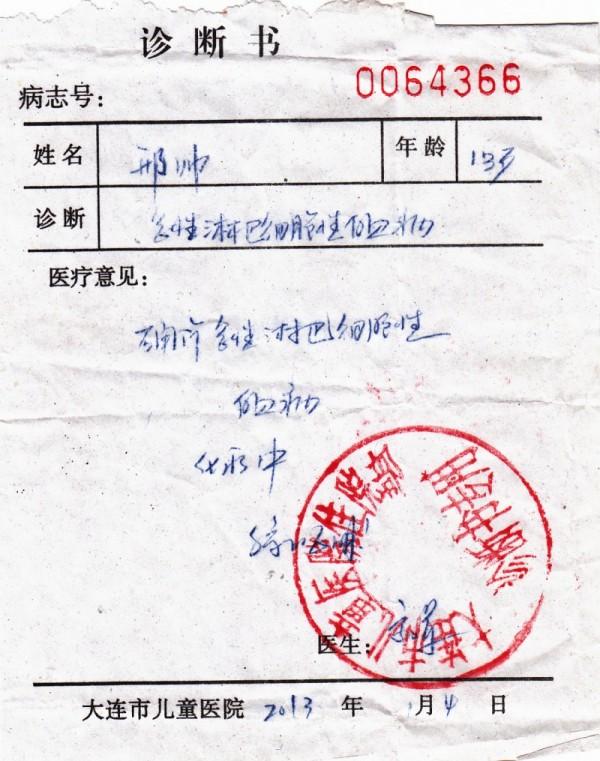 诊断书
0064366
病志号：
姓名 邢帅 年龄 13岁
诊断 急性淋巴细胞性白血病
医疗意见：
确诊急性淋巴细胞性
白血病
化疗中
医生：
大连市儿童医院 2013 年 1月4 日
大连市儿童医院住院部
诊断书专用